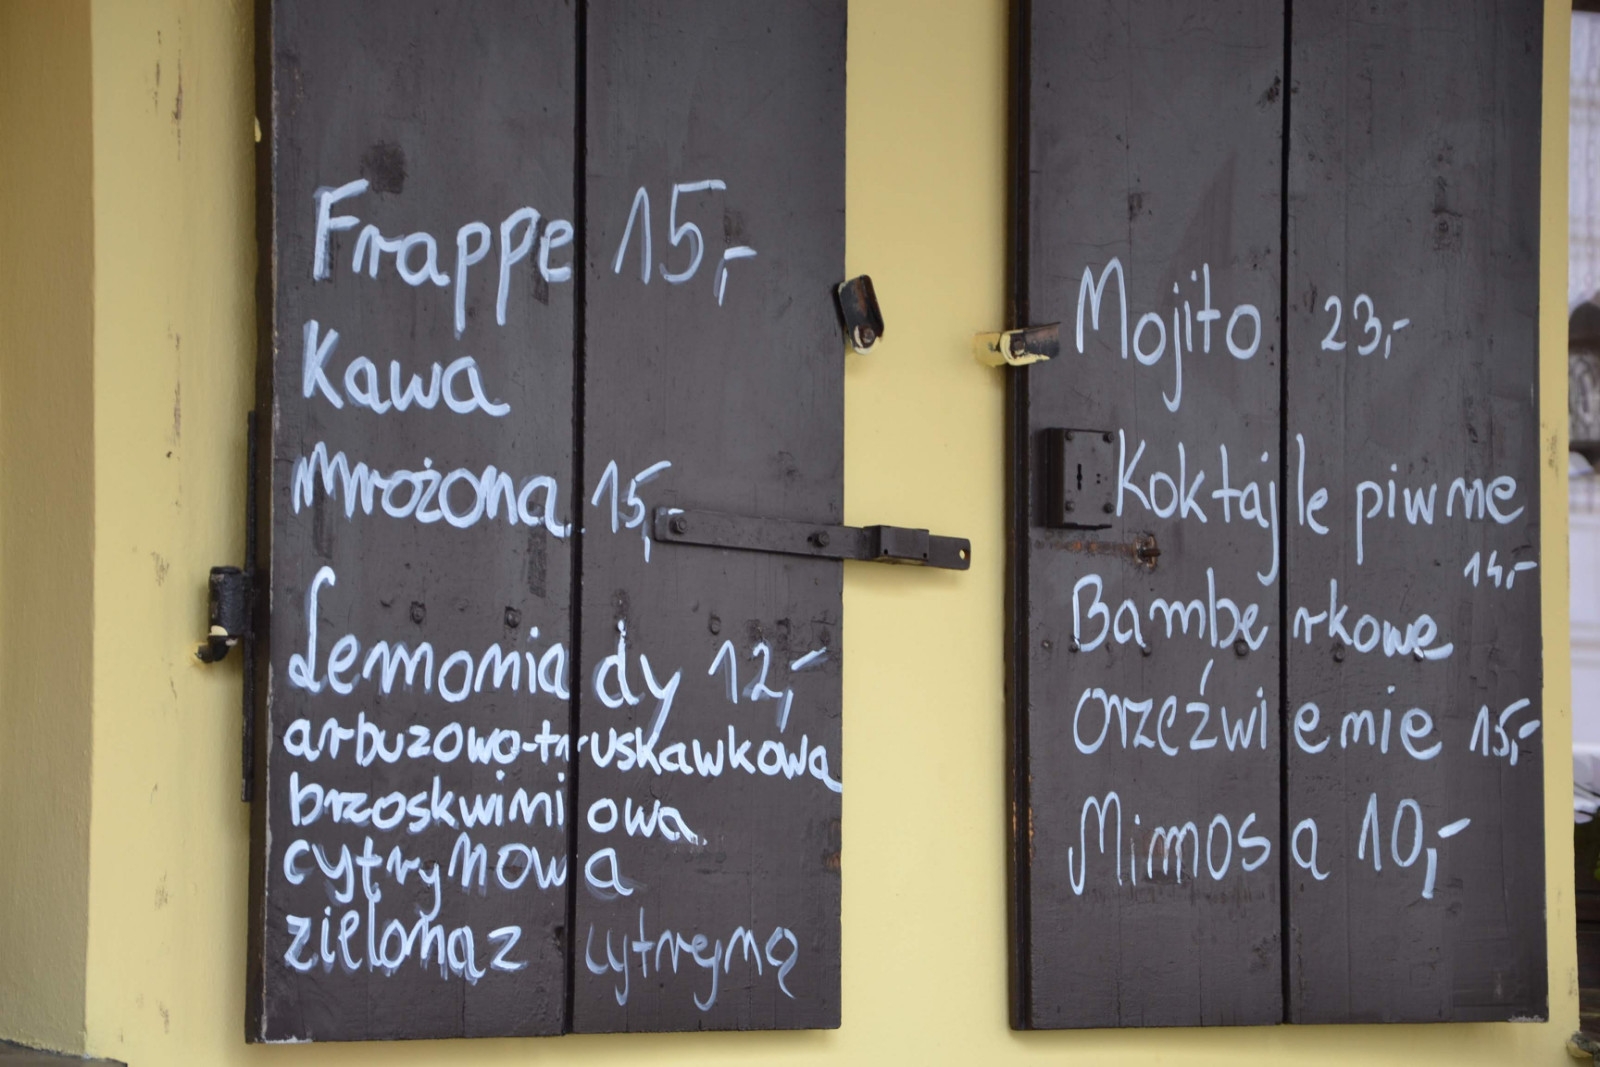 Frappe 15,-
Kawa
mrożona 15,-
Lemoniady 12,-
arbuzowo-truskawkowa
brzoskwiniowa
cytrynowa
zielona z cytryną
Mojito 23,-
Koktajle piwne
14,-
Bamberkowe
orzeźwienie 15,-
Mimosa 10,-